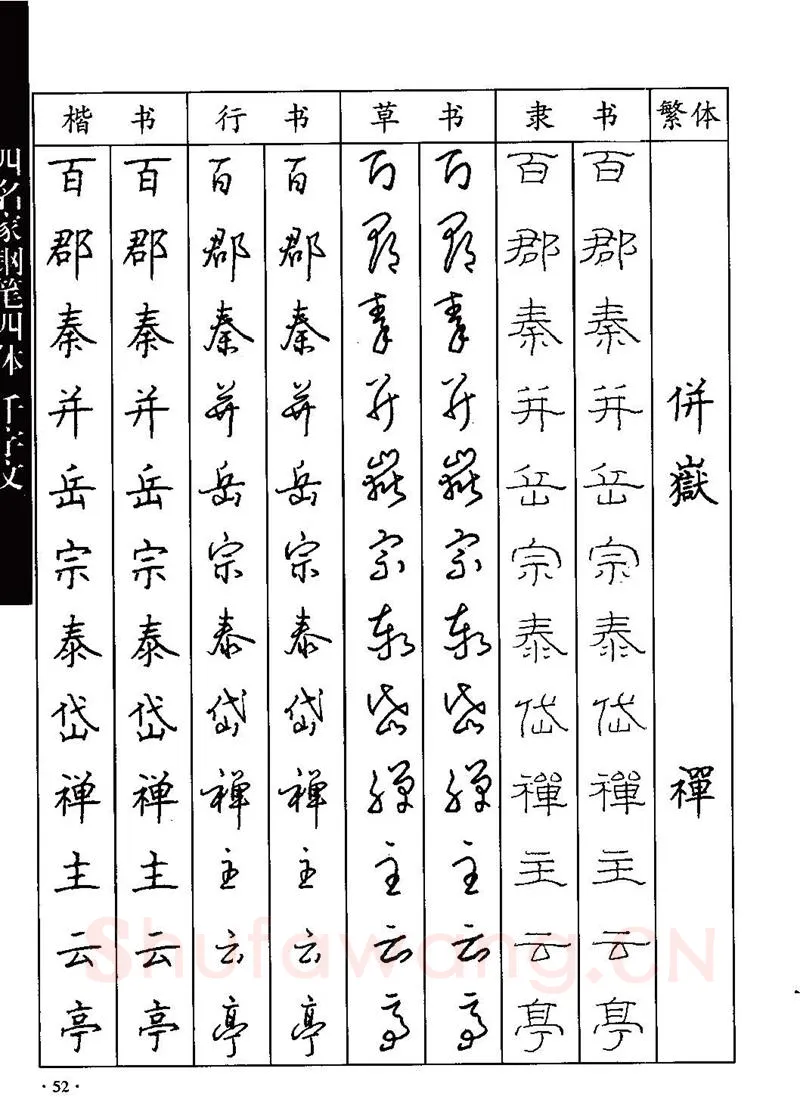 四名家钢笔四体千字文
楷书 行书 草书 隶书 繁体
百 百 百 百 百 百 百 百
郡 郡 郡 郡 郡 郡 郡 郡
秦 秦 秦 秦 秦 秦 秦 秦
并 并 并 并 并 并 并 并 併
岳 岳 岳 岳 嶽 嶽 岳 岳 嶽
宗 宗 宗 宗 宗 宗 宗 宗
泰 泰 泰 泰 泰 泰
岱 岱 岱 岱 岱 岱 岱 岱
禅 禅 禅 禅 禪 禪 禪 禪 禪
主 主 主 主 主 主 主 主
云 云 云 云 云 云 云 云
亭 亭 亭 亭 亭 亭 亭 亭
Shufawang.CN
·52·